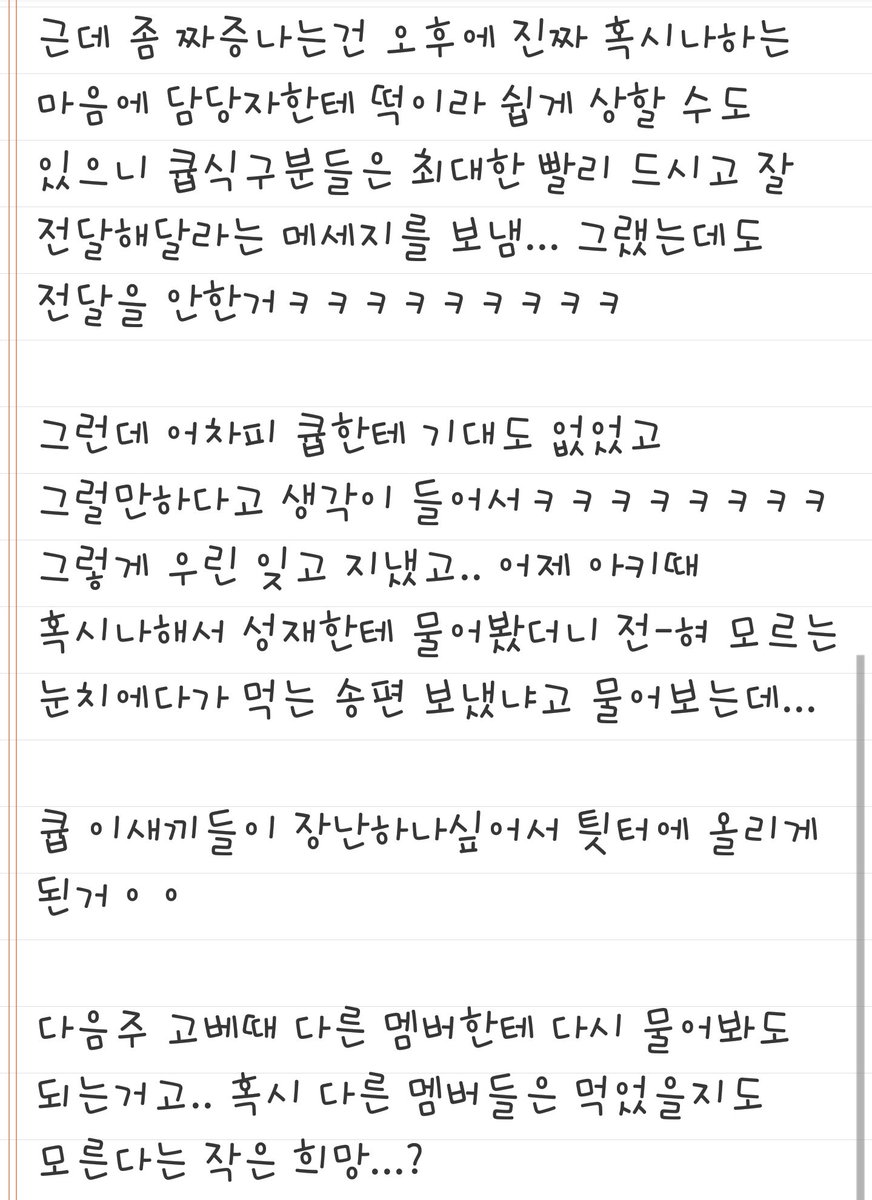 근데 좀 짜증나는건 오후에 진짜 혹시나하는
마음에 담당자한테 떡이라 쉽게 상할 수도
있으니 큡식구분들은 최대한 빨리 드시고 잘
전달해달라는 메세지를 보냄... 그랬는데도
전달을 안한거ㅋㅋㅋㅋㅋㅋㅋㅋㅋ
그런데 어차피 큡한테 기대도 없었고
그럴만하다고 생각이 들어서ㅋㅋㅋㅋㅋㅋㅋㅋ
그렇게 우린 잊고 지냈고.. 어제 아키때
혹시나해서 성재한테 물어봤더니 전-혀 모르는
눈치에다가 먹는 송편 보냈냐고 물어보는데...
큡 이새끼들이 장난하나싶어서 튓터에 올리게
된거ㅇㅇ
다음주 고베때 다른 멤버한테 다시 물어봐도
되는거고.. 혹시 다른 멤버들은 먹었을지도
모른다는 작은 희망...?